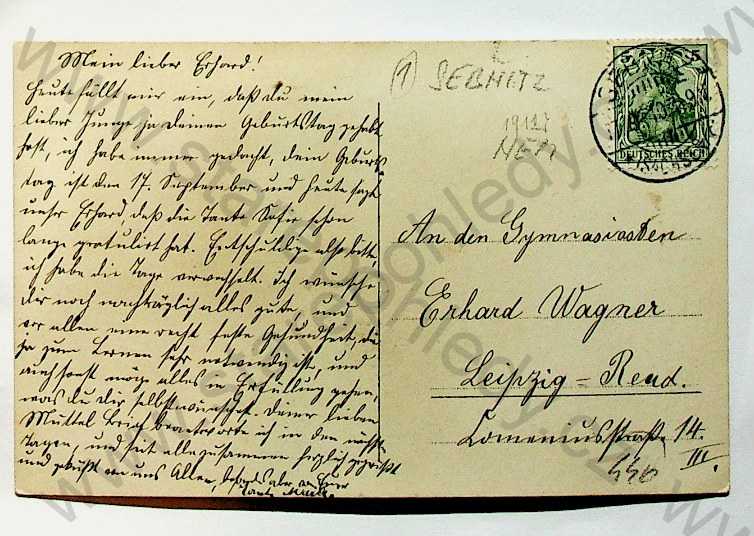 Mein lieber Erhard!
Heute fällt mir ein, daß du mein
lieber Junge ja deinen Geburtstag gehabt
hast, ich habe immer gedacht, dein Geburts-
tag ist den 17. September und heute sagt
mir Erhard, daß die Tante schon
lange gratulirt hat. Entschuldige also bitte
ich habe die Tage verwechselt. Ich wünsche
dir noch nachträglich alles gute, und
vor allen eine recht feste Gesundheit, die
ja zum Lernen sehr notwendig ist, und
auch sonst möge alles in Erfüllung gehen,
was du dir selbst wünschst. Deiner lieben
Muttel Brief beantworte ich in den nächst.
Tagen, und seit alle zusammen herzlich gegrüßt
und geküßt von uns Allen, besonders aber von Euer
Tante
1 SEBNITZ
NĚM
5
DEUTSCHES REICH
An den Gymnasiasten
Erhard Wagner
Leipzig=Reud.
Comeniusstraße 14.
III.
www.stare-pohledy.cz